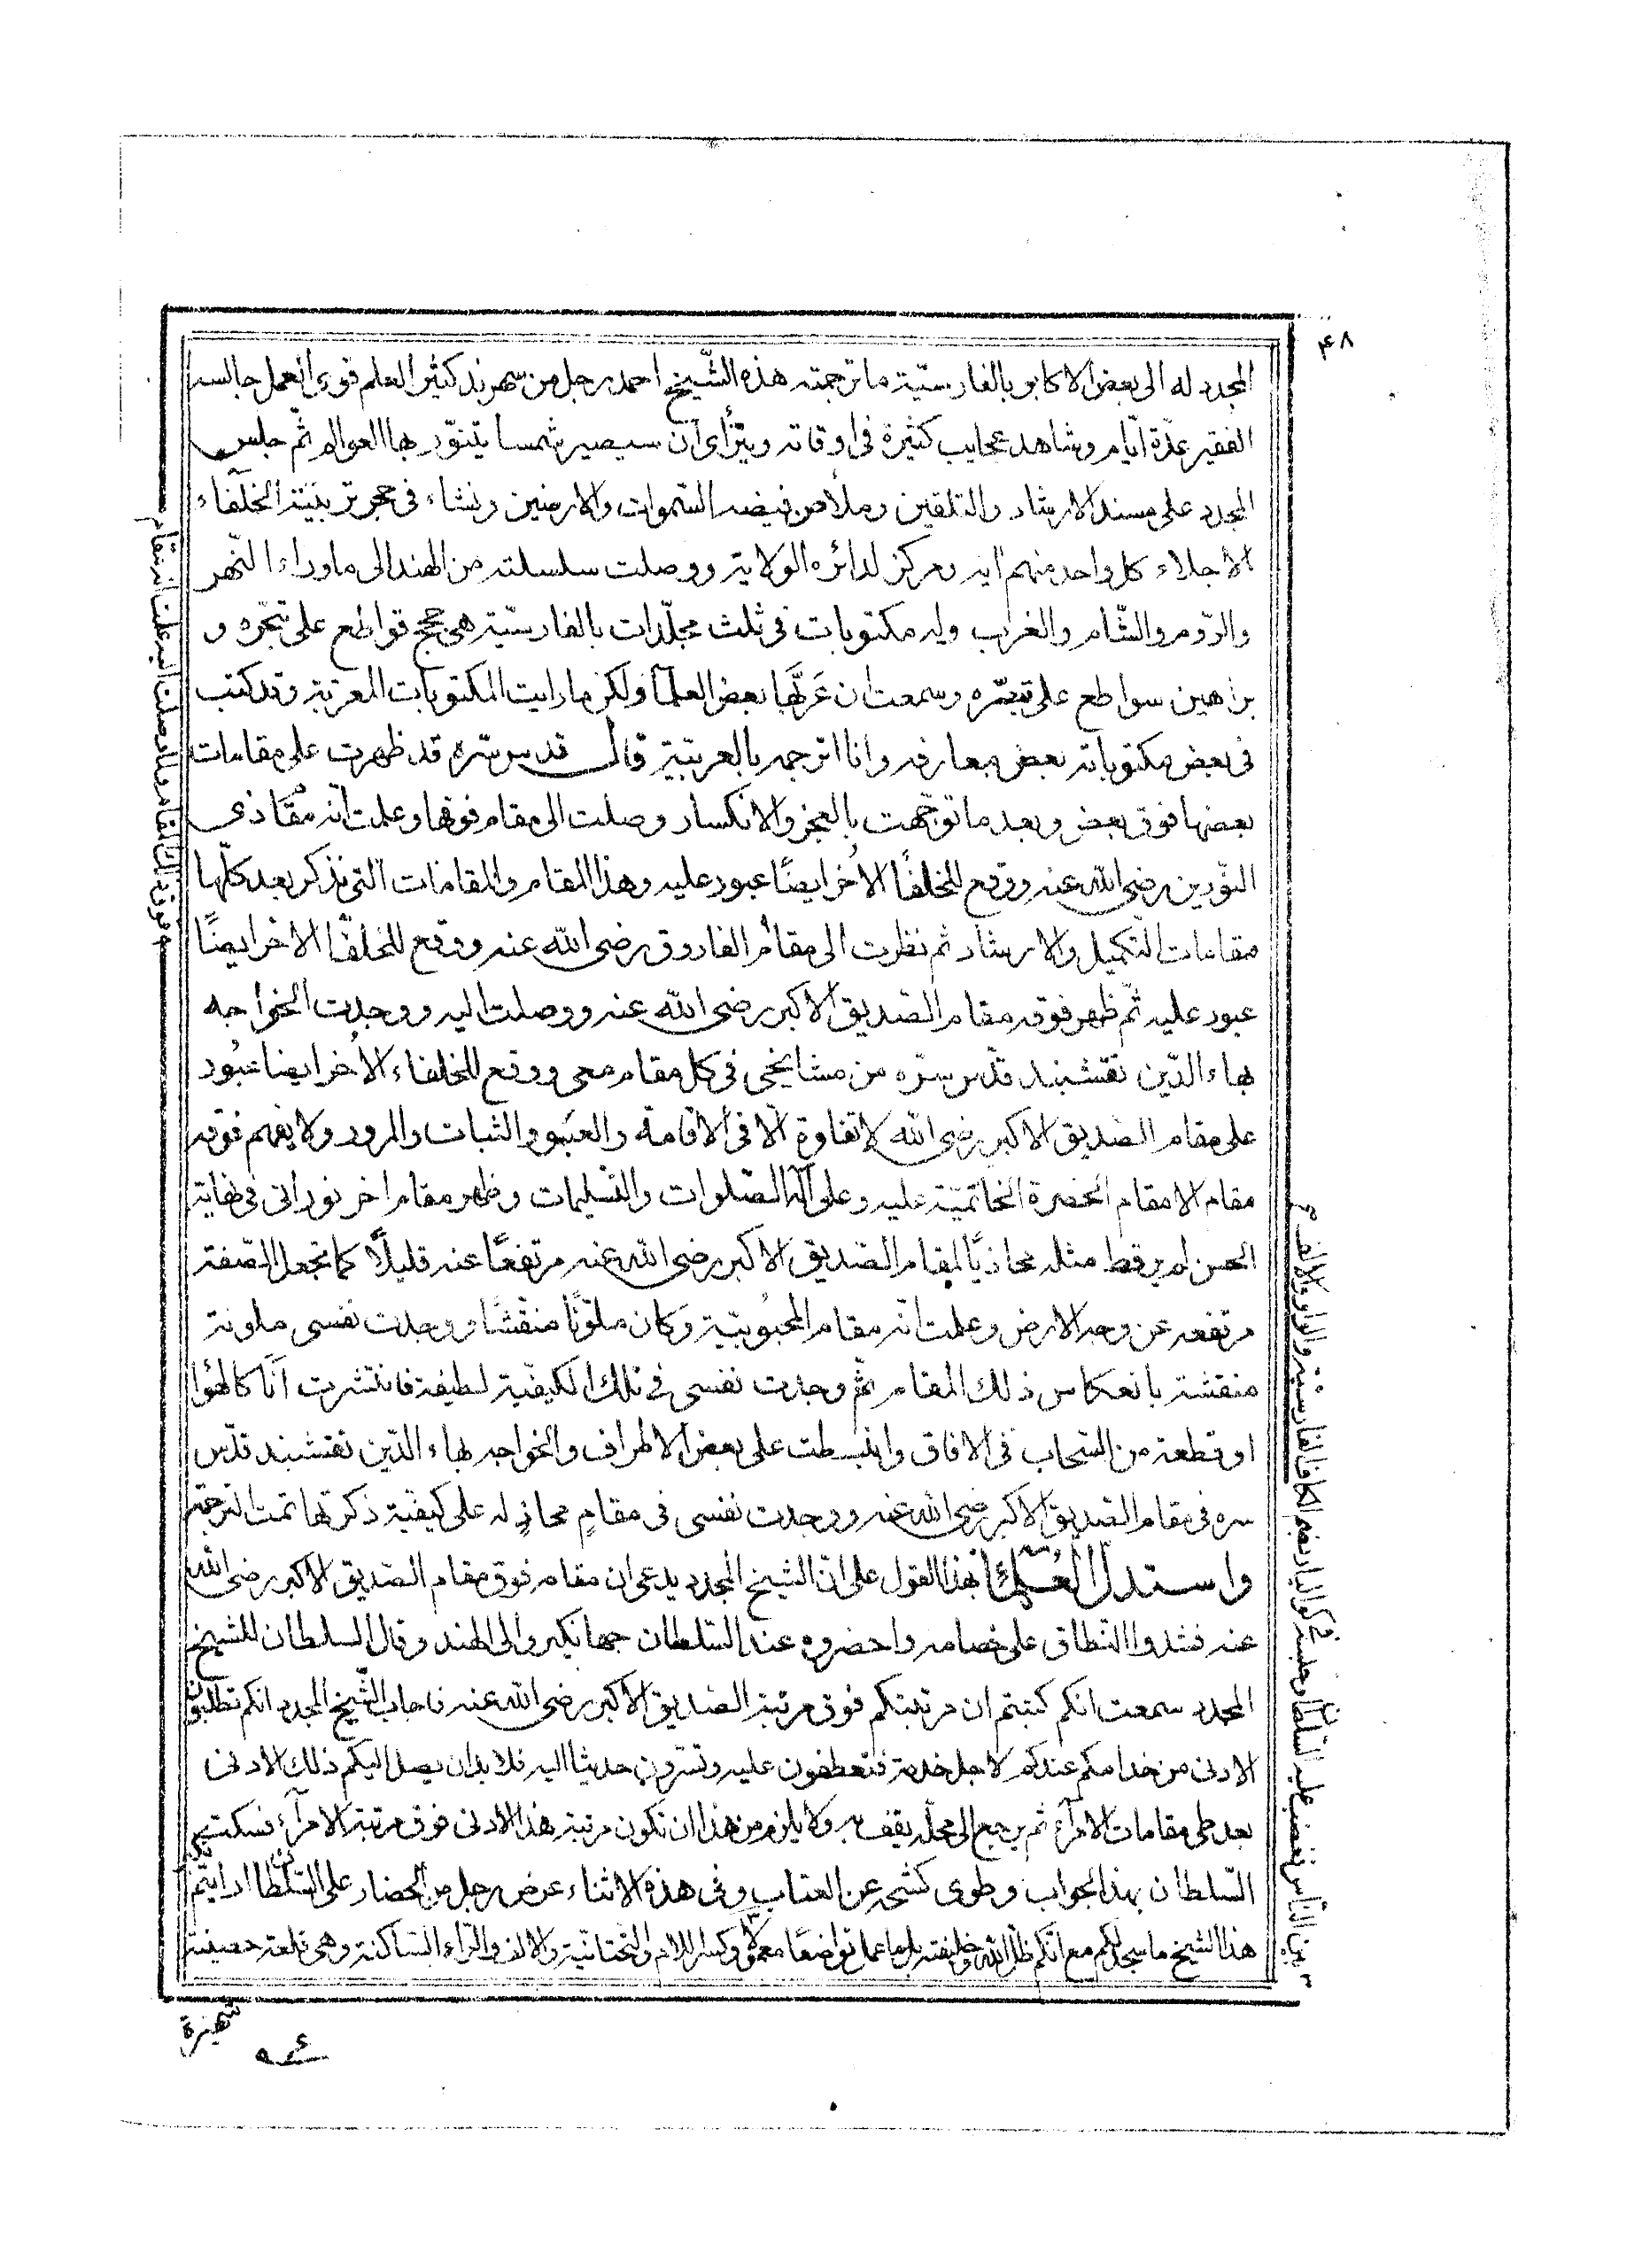 ٤٨
المجدد له الى بعض الاكابر بالفارسيّة ما ترجمته هذه الشّيخ احمد رجل من سهرند كثير العلم قوى العمل جالسه
الفقير عدّة ايّام وشاهد عجايب كثيرة فى اوقاته ويترأى ان سيصير شمسا يتنوّر بها العوالم ثمّ جلس
المجدد على مسند الارشاد والتلقين وملأ من فيضه السّموات والارضين ونشاء فى حجر تربيته الخلفاء
الاجلاء كل واحد منهم اية ومركز لدائره الولاية ووصلت سلسلته من الهند الى ماوراء النّهر
والرّوم والشّام والغرب وله مكتوبات فى ثلث مجلّدات بالفارسيّة هى حجج قواطع على تبحّره و
براهين سواطع على تبصّره وسمعت ان عَرَّبَها بعض العلمآ ولكن ما رايت المكتوبات المعربة وقد كتب
فى بعض مكتوباته بعض معارفه وانا اترجمه بالعربيّة قال قدس سّره قد ظهرت على مقامات
بعضها فوق بعض وبعد ما توجّهت بالعجز والانكسار وصلت الى مقام فوقها وعلمت انّه مقام ذى
النّورين رضى الله عنه ووقع للخلفآ الاُخر ايضًا عبور عليه وهذا المقام والمقامات الّتى نذكر بعد كلّها
مقامات التكميل والارشاد ثم نظرت الى مقام الفاروق رضى الله عنه ووقع للخلفآ الاخر ايضًا
عبور عليه ثمّ ظهر فوقه مقام الصّديق الاكبر رضى الله عنه ووصلت اليه ووجدت الخواجه
بهاء الدّين نقشبند قدّس سرّه من مشايخى فى كل مقام معى ووقع للخلفاء الاُخر ايضا عبُور
على مقام الصّديق الاكبر رضى الله لا تفاوة الّا فى الاقامة والعبور والثبات والمرور ولا يفهم فوقه
مقام الا مقام الحضرة الخاتميّة عليه وعلى آله الصّلوات والتّسليمات وظهر مقام اخر نورانى فى نهاية
الحسن لم ير قط مثله محاذيًا لمقام الصّديق الاكبر رضى الله عنه مرتفعًا عنه قليلًا كما تجعل الصّفة
مرتفعه عن وجه الارض وعلمت انّه مقام المحبُوبيّة وكان ملوّنًا منقّشًا ووجدت نفسى ملونة
منقشة بانعكاس ذلك المقام ثمّ وجدت نفسى فى تلك الكيفيّة لطيفة فانتشرت اَنَا كالهوآ
او قطعة من السّحاب فى الافاق وانبسطت على بعض الاطراف والخواجه بهاء الدّين نقشبند قدّس
سره فى مقام الصّديق الاكبر رضى الله عنه ووجدت نفسى فى مقامٍ محاذٍ له على كيفيّة ذكرتها تمت الترجمة
واستدلّ العُلمآ بهذا القول على انّ الشيخ المجدد يدعى ان مقامه فوق مقام الصّديق الاكبر رضى الله
عنه فشدوا النّطاق على خصامه واحضروه عند السّلطان جهانكير والى الهند وقال السلطان للشيخ
المجدد سمعت انكم كتبتم ان مرتبتكم فوق مرتبة الصّديق الاكبر رضى الله عنه فاجاب الشّيخ المجدد انكم تطلبون
الادنى من خدامكم عندكم لاجل خدمة فتعطفون عليه وتسّرون حديثا اليه فلا بد ان يصل اليكم ذلك الادنى
بعد طى مقامات الامرآء ثم يرجع الى محلّه يقف به ولا يلزم من هذا ان تكون مرتبة هذا الادنى فوق مرتبة الامرآء فسكت
السّلطان بهذا الجواب وطوى كشحه عن العتاب وفى هذه الاثناء عرض رجل من الحضار على السّلطان ارايتم
هذا الشيخ ما سجد لكم مع انكم ظل الله وخليفته بل ما عمل تواضعًا وكسر اللام والتحتانية والالف والرّاء السّاكنة وهى قلعة حصينة
شهيرة